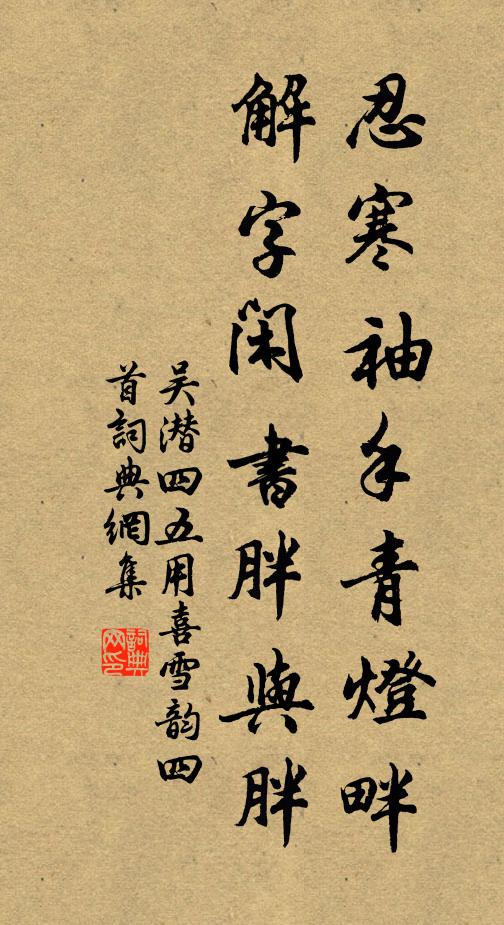 忍寒袖手青燈畔
解字閑書胖與胖
吴潜四五用喜雪韵四
首詞典網集
詞典網印